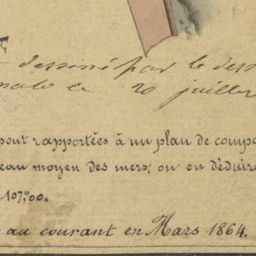 dessiné par le dess
le 20 juillet
sont rapportées à un plan de compa
eau moyen des mers; on en déduira
107,00.
au courant en Mars 1864.